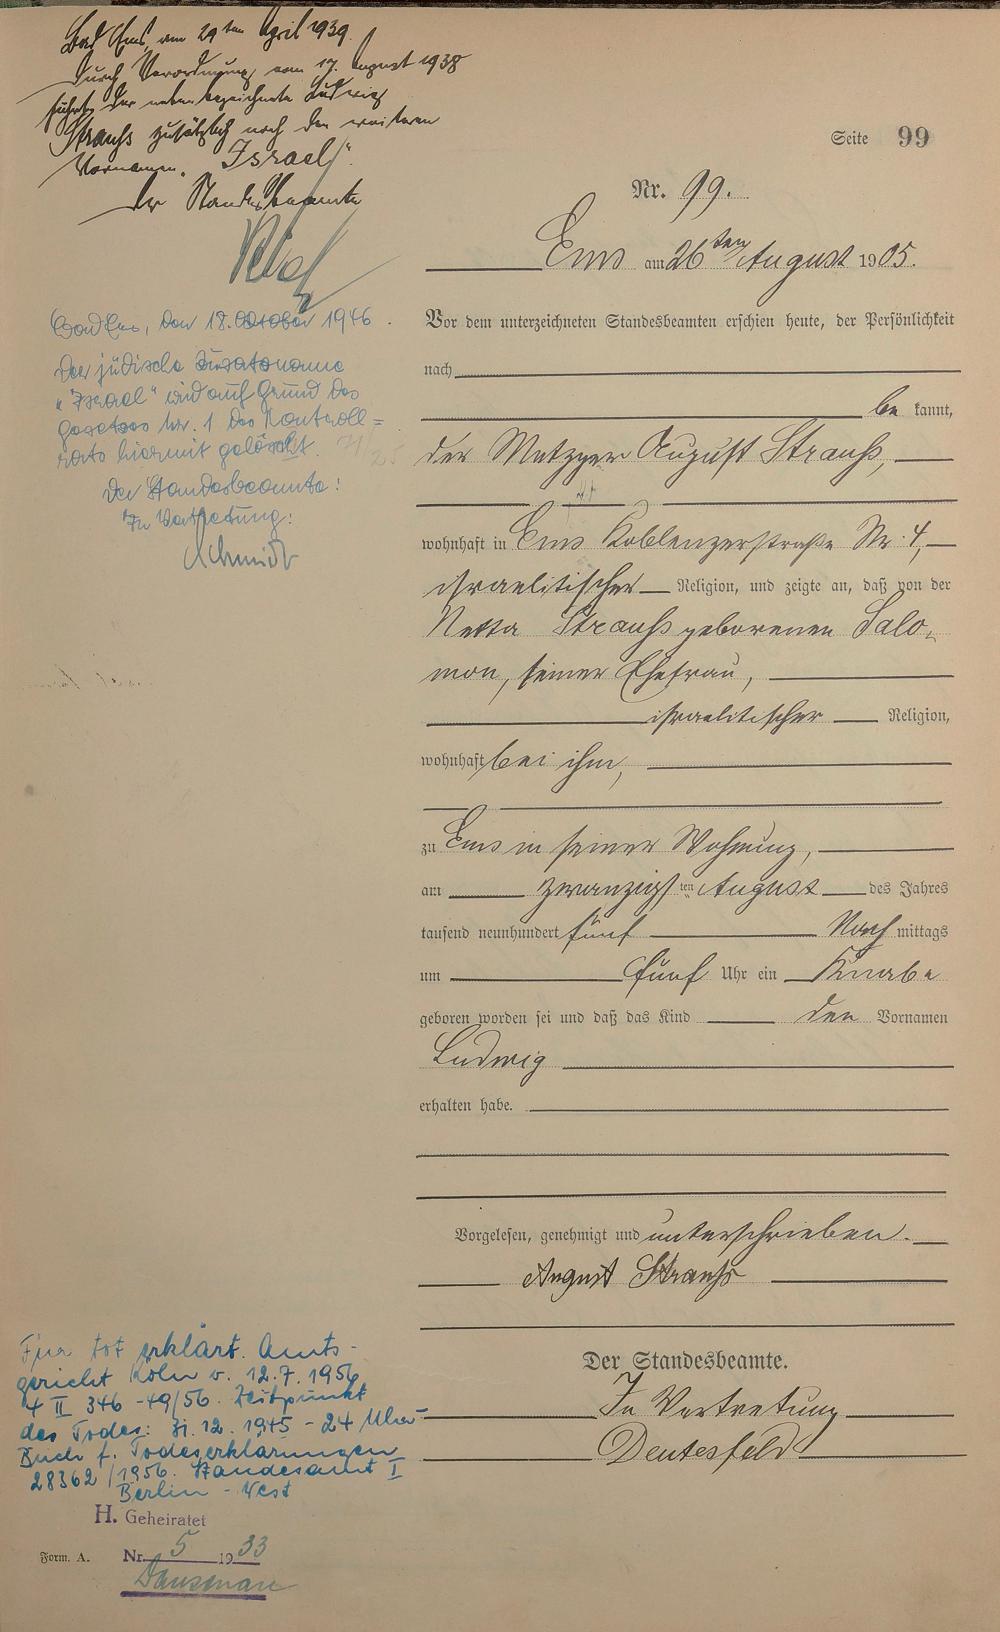 Bad Ems, am 29ten April 1939.
Durch Verordnung vom 17. August 1938
führt der nebenbezeichnete Ludwig
Strauss zusätzlich noch den weiteren
Vornamen "Israel".
Der Standesbeamte
Bad Ems, den 18. Oktober 1946.
Der jüdische Zusatzname
"Israel" wird auf Grund des
Gesetzes Nr. 1 des Kontroll=
rats hiermit gelöscht.
Der Standesbeamte:
In Vertretung:
Schmidt
Seite 99
Nr. 99.
Ems am 26ten August 1905.
Vor dem unterzeichneten Standesbeamten erschien heute, der Persönlichkeit
nach
be kannt,
der Metzger August Strauß,
wohnhaft in Ems Koblenzerstraße Nr. 4,
israelitischer Religion, und zeigte an, daß von der
Strauß geborenen Salo-
mon, seiner Ehefrau,
israelitischer Religion,
wohnhaft bei ihm,
zu Ems in seiner Wohnung,
am zwanzigsten August des Jahres
tausend neunhundert fünf Nach mittags
um fünf Uhr ein Knabe
geboren worden sei und daß das Kind den Vornamen
Ludwig
erhalten habe.
Vorgelesen, genehmigt und unterschrieben.
August Strauß
Der Standesbeamte.
In Vertretung
Deutesfeld
Für tot erklärt. Amts-
gericht Köln v. 12.7.1956
4 II 346-49/56. Zeitpunkt
des Todes: 31.12.1945 - 24 Uhr
Buch f. Todeserklärungen
28362/1956. Standesamt I
Berlin-West
H. Geheiratet
Form. A.
Nr. 5 1933